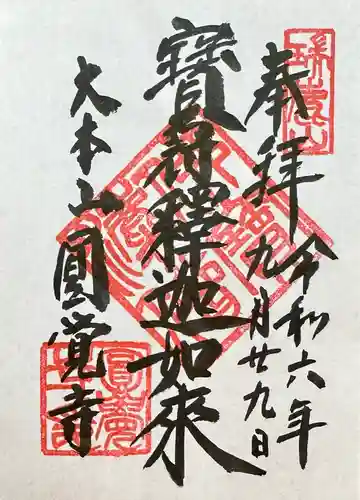 奉拝
令和六年
九月廿九日
寶冠釋迦如來
大本山圓覺寺
瑞鹿山